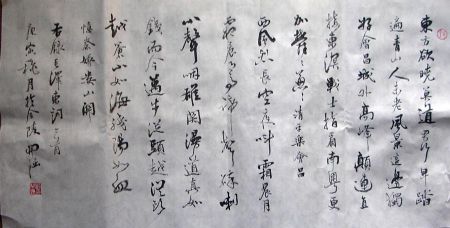 東方欲曉莫道君行早踏
遍青山人未老風景這邊獨
好會昌城外高峰顛連直
接東溟戰士指看南粤更
加鬱鬱葱葱 清平樂會昌
西風烈長空雁叫霜晨月
霜晨月馬蹄聲碎喇
叭聲咽雄關漫道真如
鐵而今邁步從頭越從頭
越蒼山如海殘陽如血
憶秦娥婁山關
右錄毛澤東詞二首
庚寅穐月於金陵